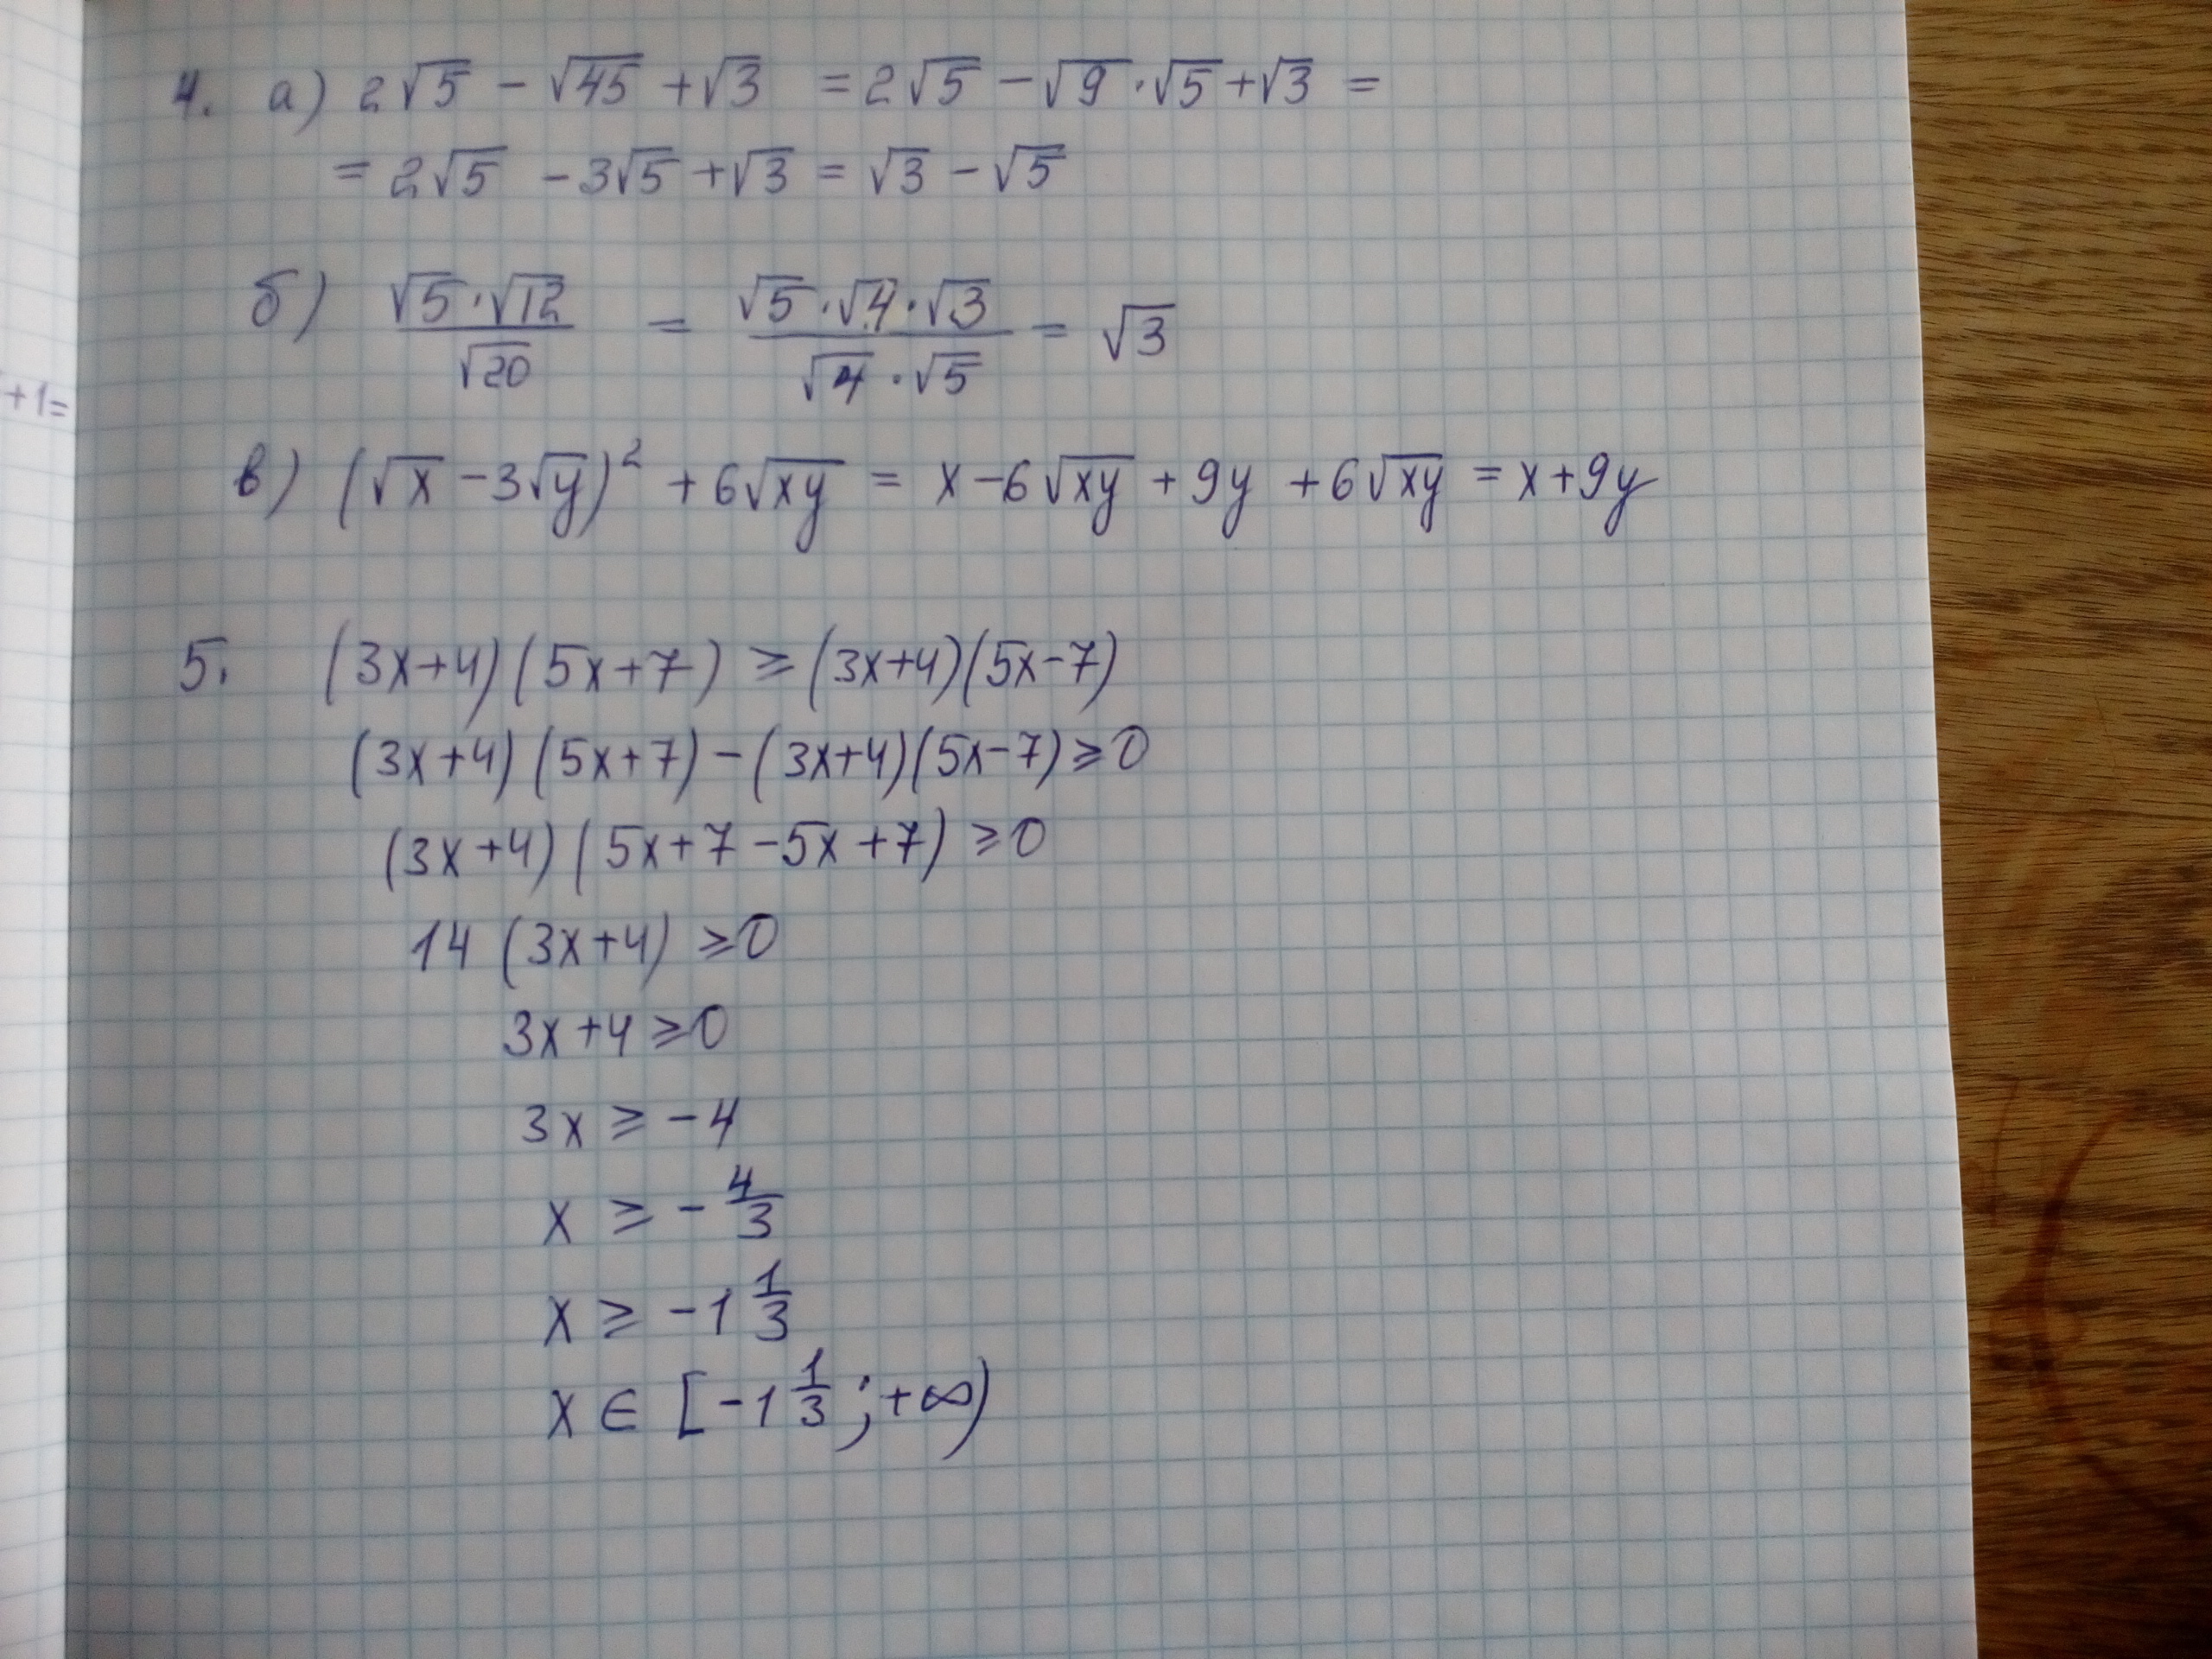 +1=
4. а) 2√5 − √45 + √3 = 2√5 − √9 · √5 + √3 =
= 2√5 − 3√5 + √3 = √3 − √5
б) (√5 · √12)/√20 = (√5 · √4 · √3)/(√4 · √5) = √3
в) (√x − 3√y)² + 6√xy = x − 6√xy + 9y + 6√xy = x + 9y
5. (3x+4)(5x+7) ≥ (3x+4)(5x−7)
(3x+4)(5x+7) − (3x+4)(5x−7) ≥ 0
(3x+4)(5x+7−5x+7) ≥ 0
14 (3x+4) ≥ 0
3x+4 ≥ 0
3x ≥ −4
x ≥ −4/3
x ≥ −1 1/3
x ∈ [−1 1/3 ; +∞)